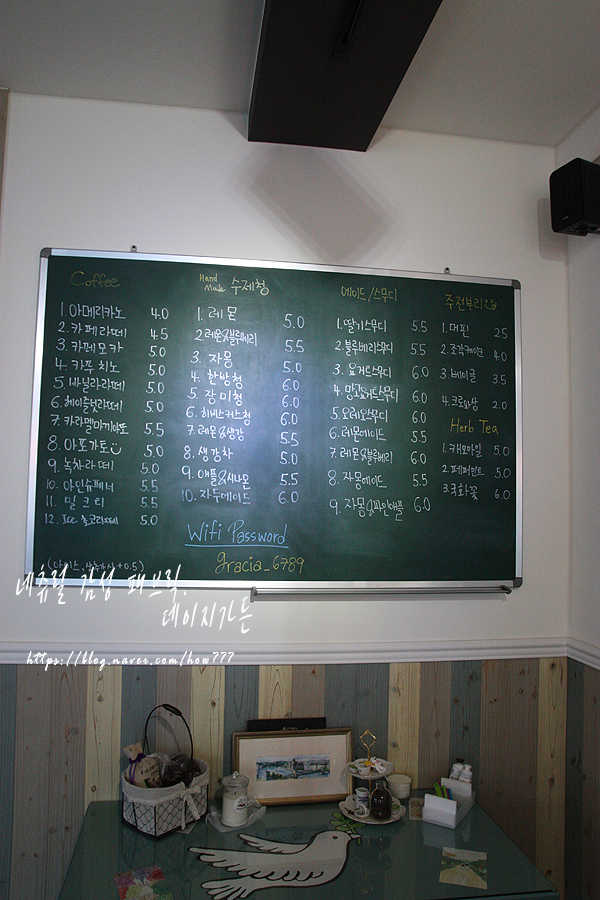 Coffee
1. 아메리카노 4.0
2. 카페라떼 4.5
3. 카페모카 5.0
4. 카푸치노 5.0
5. 바닐라라떼 5.0
6. 헤이즐넛라떼 5.0
7. 카라멜마끼아또 5.5
8. 아포가토 5.0
9. 녹차라떼 5.0
10. 아인슈페너 5.5
11. 밀크티 5.5
12. Ice 초코라떼 5.0
+0.5)
Hand Made 수제청
1. 레몬 5.0
2. 레몬&블루베리 5.5
3. 자몽 5.0
4. 한방청 6.0
5. 장미청 6.0
6. 히비스커스청 6.0
7. 레몬&생강 5.5
8. 생강차 5.0
9. 애플&시나몬 5.5
10. 자두에이드 6.0
Wifi Password
gracia_6789
에이드/스무디
1. 딸기스무디 5.5
2. 블루베리스무디 5.5
3. 요거트스무디 6.0
4. 망고요거트스무디 6.0
5. 오레오스무디 6.0
6. 레몬에이드 5.5
7. 레몬&블루베리 6.0
8. 자몽에이드 5.5
9. 자몽&파인애플 6.0
주전부리
1. 머핀 2.5
2. 조각케이크 4.0
3. 베이글 3.5
4. 크로와상 2.0
Herb Tea
1. 캐모마일 5.0
2. 페퍼민트 5.0
3. 국화꽃 6.0
네츄럴 감성 패브릭.
데이지가든
https://blog.naver.com/how777